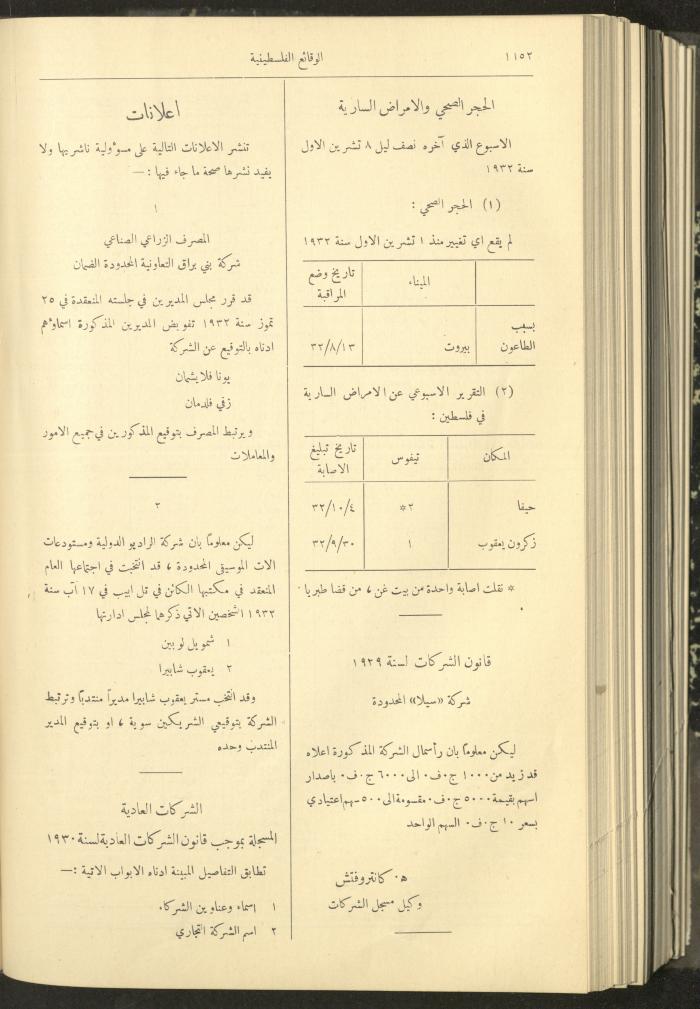 ١١٥٢
الوقائع الفلسطينية
الحجر الصحي والامراض السارية
الاسبوع الذي آخره نصف ليل ٨ تشرين الاول
سنة ١٩٣٢
(١) الحجر الصحي :
لم يقع اي تغيير منذ ١ تشرين الاول سنة ١٩٣٢
الميناء تاريخ وضع
المراقبة
بسبب
الطاعون بيروت ٣٢/٨/١٣
(٢) التقرير الاسبوعي عن الامراض السارية
في فلسطين :
المكان تيفوس تاريخ تبليغ
الاصابة
حيفا ٢* ٣٢/١٠/٤
زكرون يعقوب ١ ٣٢/٩/٣٠
* نقلت اصابة واحدة من بيت غن ، من قضا طبريا
قانون الشركات لسنة ١٩٢٩
شركة «سيلا» المحدودة
ليكن معلوماً بان رأسمال الشركة المذكورة اعلاه
قد زيد من ١٠٠٠ ج٠ف٠ الى ٦٠٠٠ ج٠ف٠ باصدار
اسهم بقيمة ٥٠٠٠ ج٠ف٠ مقسومة الى ٥٠٠ سهم اعتيادي
بسعر ١٠ ج٠ف٠ السهم الواحد
ه٠ كانتروفتش
وكيل مسجل الشركات
اعلانات
تنشر الاعلانات التالية على مسوٴولية ناشريها ولا
يفيد نشرها صحة ما جاء فيها :—
١
المصرف الزراعي الصناعي
شركة بني براق التعاونية المحدودة الضمان
قد قرر مجلس المديرين في جلسته المنعقدة في ٢٥
تموز سنة ١٩٣٢ تفويض المديرين المذكورة اسماوٴهم
ادناه بالتوقيع عن الشركة
يونا فلايشمان
زفي فلدمان
ويرتبط المصرف بتوقيع المذكورين في جميع الامور
والمعاملات
٢
ليكن معلوماً بان شركة الراديو الدولية ومستودعات
الات الموسيقى المحدودة ، قد انتخبت في اجتماعها العام
المنعقد في مكتبها الكائن في تل ابيب في ١٧ آب سنة
١٩٣٢ الشخصين الاتي ذكرهما لمجلس ادارتها
١ شمويل لوبين
٢ يعقوب شابيرا
وقد انتخب مستر يعقوب شابيرا مديراً منتدباً وترتبط
الشركة بتوقيعي الشريكين سوية ، او بتوقيع المدير
المنتدب وحده
الشركات العادية
المسجلة بموجب قانون الشركات العادية لسنة ١٩٣٠
تطابق التفاصيل المبينة ادناه الابواب الاتية :—
١ اسماء وعناوين الشركاء
٢ اسم الشركة التجاري